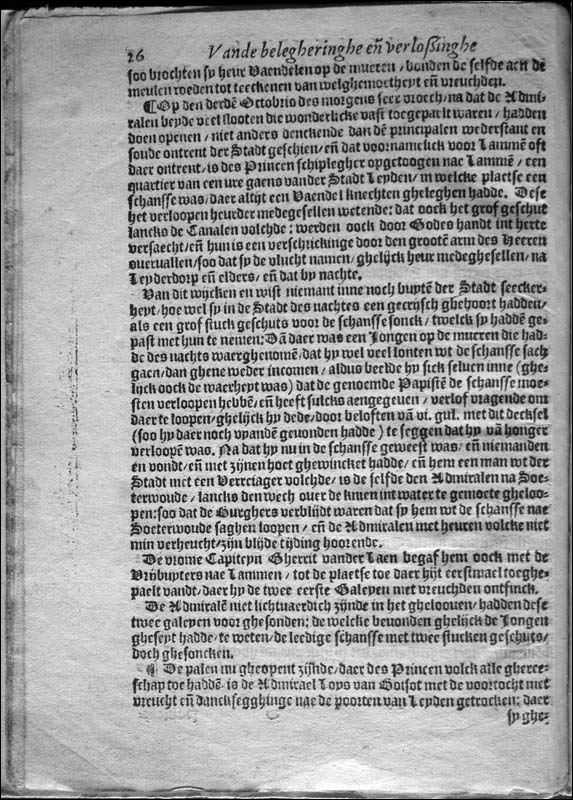 26 Vande belegheringhe en̄ verlossinghe
soo brochten sy heur Vaendelen op de mueren / bonden de selfde aen de
meulen roeden tot teeckenen van welghemoetheyt en̄ vreuchden.
¶ Op den derdē Octobris des morgens seer vroech / na dat de Admi-
ralen beyde veel slooten die wonderlicke vast toegepaelt waren / hadden
doen openen / niet anders denckende dan dē principalen wederstant en
soude ontrent der Stadt geschien / en̄ dat voornamelick voor Lammē oft
daer ontrent / is des Princen schiplegher opgetoogen nae Lammē / een
quartier van een ure gaens vander Stadt Leyden / in welcke plaetse een
schansse was / daer altijt een Vaendel knechten gheleghen hadde. Dese
het verloopen heurder medegesellen wetende: dat oock het grof geschut
lancks de Canalen volchde: werden oock door Godes handt int herte
versaecht / en̄ hun is een verschrickinge door den grootē arm des Heeren
overvallen / soo dat sy de vlucht namen / ghelijck heur medeghesellen / na
Leyderdorp en̄ elders / en̄ dat by nachte.
Van dit wijcken en wist niemant inne noch buytē der Stadt seecker-
heyt / hoe wel sy in de Stadt des nachtes een gecrijsch ghehoort hadden /
als een grof stuck geschuts voor de schansse sonck / twelck sy haddē ge-
past met hun te nemen: Dā daer was een Jongen op de mueren die had-
de des nachts waerghenomē / dat hy wel veel lonten wt de schansse sach
gaen / dan ghene weder incomen / aldus beelde hy sick selven inne (ghe-
lijck oock de waerheyt was) dat de genoemde Papistē de schansse moe-
sten verloopen hebbē / en̄ heeft sulcks aengegeven / verlof vragende om
daer te loopen / ghelijck hy dede / door beloften vā vi. gul. met dit decksel
(soo hy daer noch vyandē gevonden hadde) te seggen dat hy vā honger
verloopē was. Na dat hy nu in de schansse geweest was / en̄ niemanden
en vondt / en̄ met zijnen hoet ghewincket hadde / en̄ hem een man wt der
Stadt met een Verreiager volchde / is de selfde den Admiralen na Soe-
terwoude / lancks den wech over de knien int water te gemoete gheloo-
pen: soo dat de Burghers verblijdt waren dat sy hem wt de schansse nae
Soeterwoude saghen loopen / en̄ de Admiralen met heuren volcke niet
min verheucht / zijn blijde tijding hoorende.
De vrome Capiteyn Gherrit vander Laen begaf hem oock met de
Vrijbuyters nae Lammen / tot de plaetse toe daer hijt eerstmael toeghe-
paelt vandt / daer hy de twee eerste Galeyen met vreuchden ontfinck.
De Admiralē niet lichtvaerdich zijnde in het gheloouen / hadden dese
twee galeyen voor ghesonden: de welcke bevonden ghelijck de Jongen
gheseyt hadde / te weten / de leedige schansse met twee stucken geschuts /
doch ghesoncken.
¶ De palen nu gheopent zijnde / daer des Princen volck alle gheree-
schap toe haddē is de Admirael Loys van Boisot met de voortocht met
vreucht en̄ dancksegghinge nae de poorten van Leyden getrocken: daer
sy ghe-